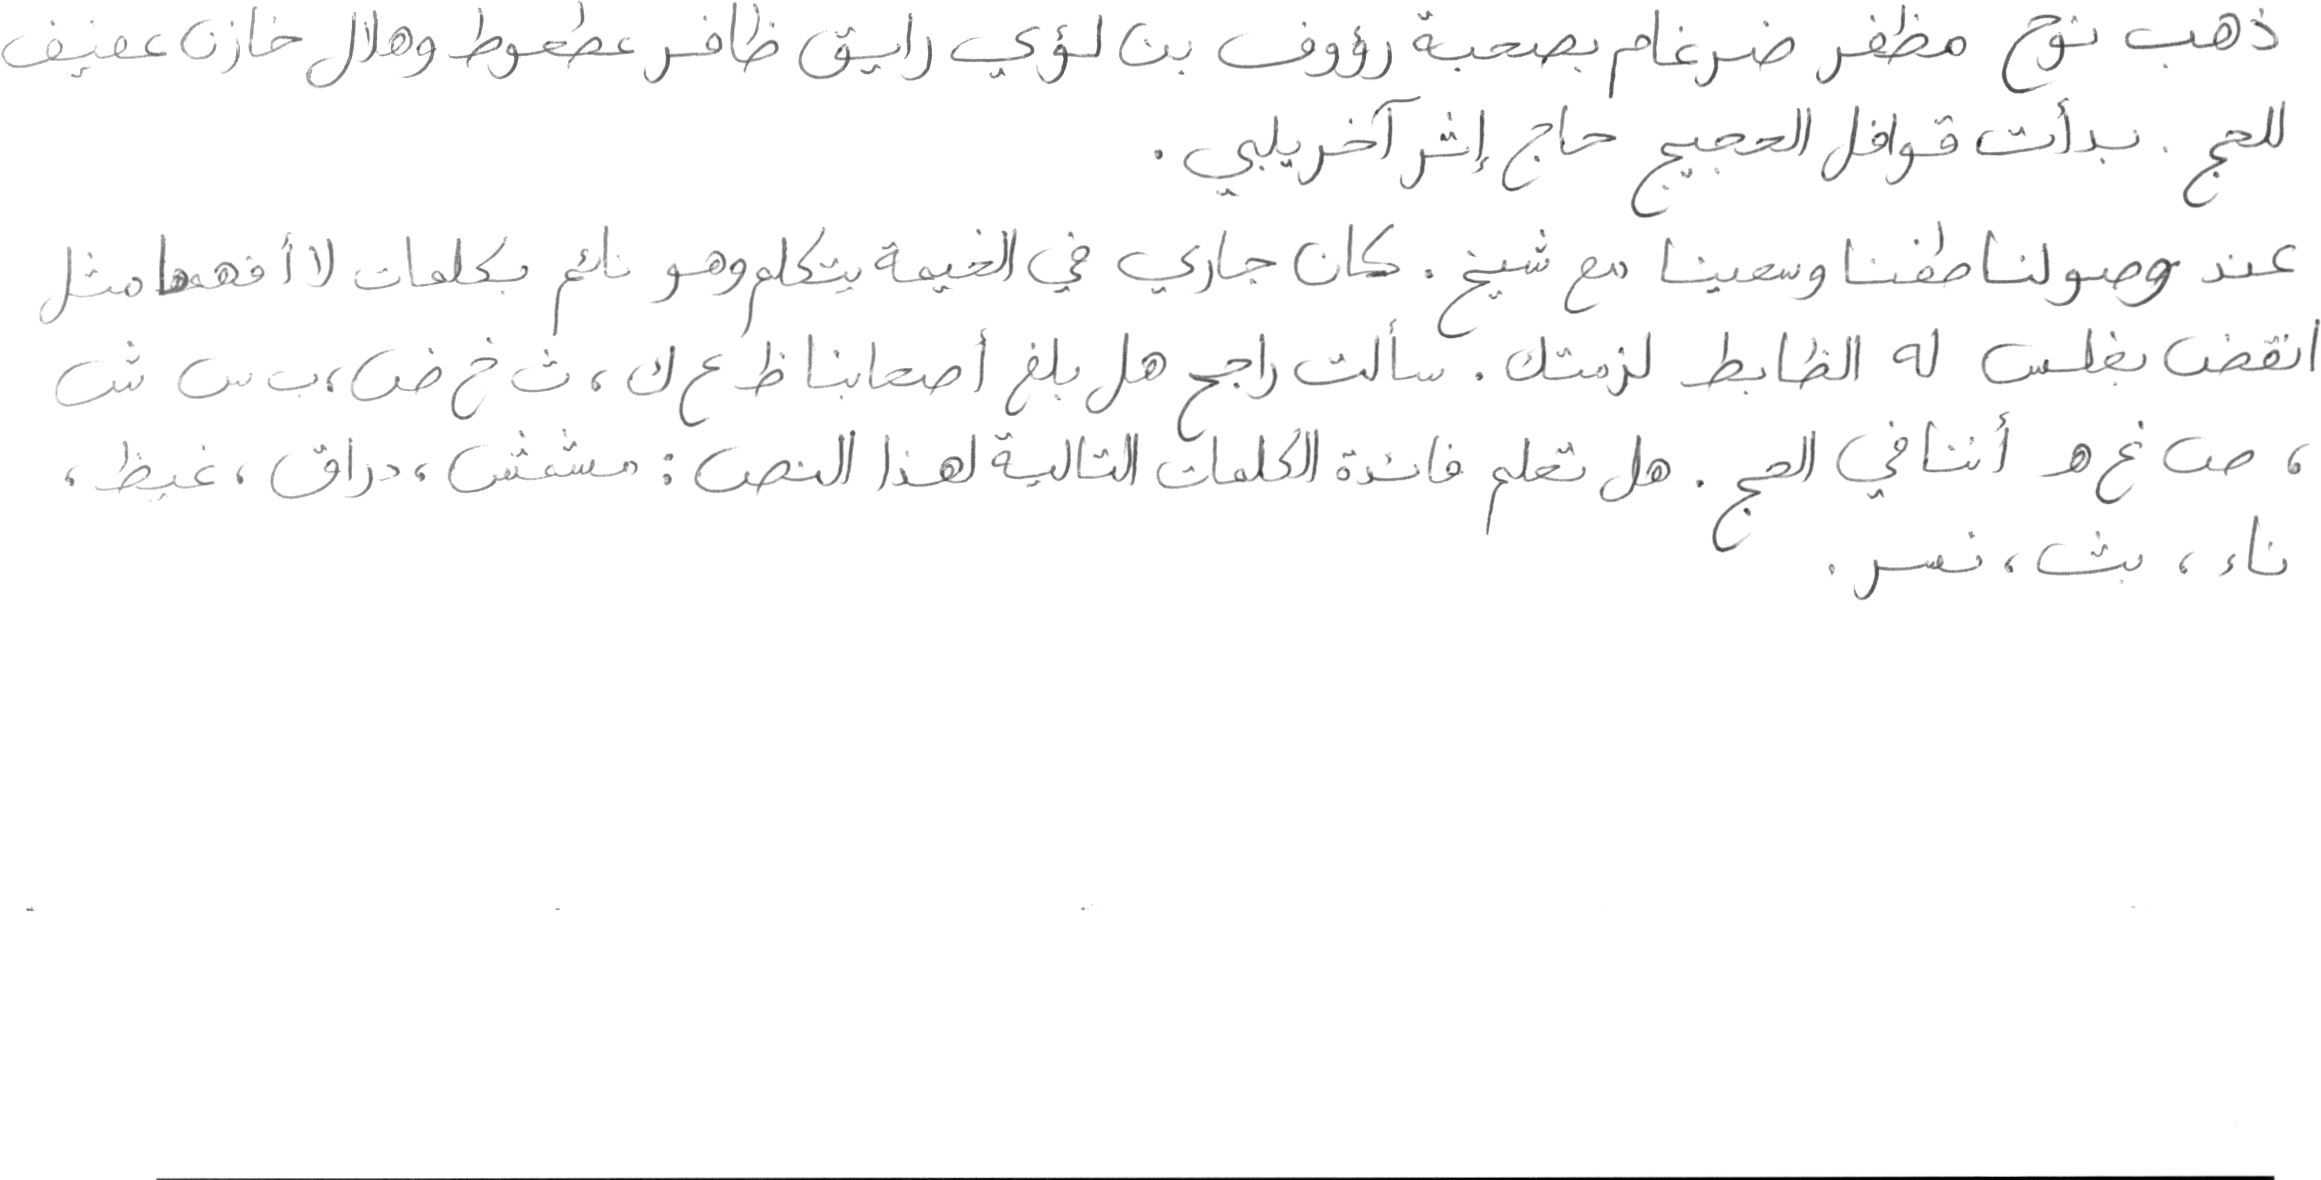 ذهب نوح مظفر ضرغام بصحبة رؤوف بن لؤي رايق ظافر عطعوط وهلال خازن عفيف
للحج . بدأت قوافل الحجيج حاج إثر آخر يلبي .
عند وصولنا طفنا وسعينا مع شيخ . كان جاري في الخيمة يتكلم وهو نائم بكلمات لا أفهمها مثل
انقض بغلس له الظابط لزمتك . سألت راجح هل بلغ أصحابنا ظ ع ك ، ث خ ض ، ب س ش
، ص غ ه أننا في الحج . هل تعلم فائدة الكلمات التالية لهذا النص : مشمش ، دراق ، غيظ ،
ناء ، بث ، نسر .